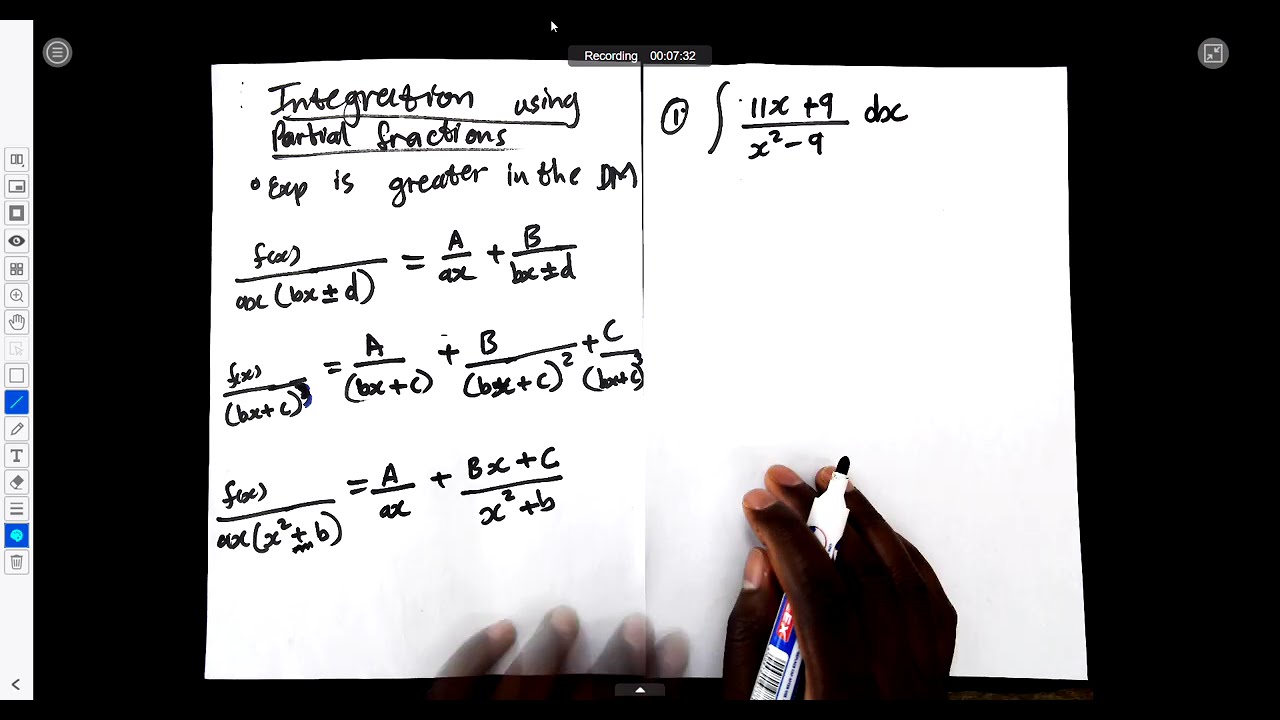 Recording 00:07:32
Integration using
Partial fractions
• Exp is greater in the DM
f(x)/(ax(bx ± d)) = A/(ax) + B/(bx ± d)
f(x)/(bx + c)³ = A/(bx + c) + B/(bx + c)² + C/(bx + c)³
f(x)/(ax(x² + b)) = A/(ax) + (Bx + C)/(x² + b)
① ∫ (11x + 9)/(x² − 9) dx
T
LEX